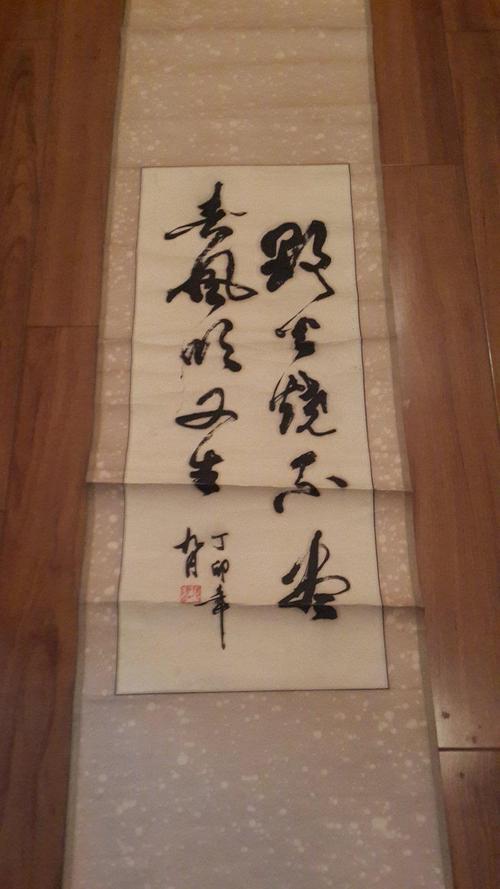 野火燒不盡
春風吹又生
丁卯年
九月